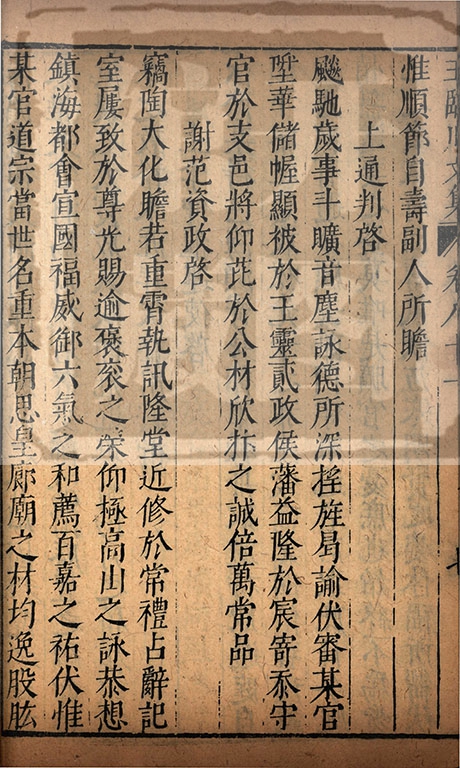 王臨川文集 卷八十一
惟順節自壽副人所瞻
上通判啓
飈馳歲事斗曠音塵詠德所深旌曷諭伏審某官
陞華儲幄顯被於王靈貳政侯藩益隆於宸寄忝守
官於支邑將仰芘於公材欣抃之誠倍萬常品
謝范資政啓
竊陶大化瞻若重霄執訊隆堂近修於常禮占辭記
室屢致於尊光賜逾褒衮之榮仰極高山之詠恭想
鎮海都會宣國福威御六氣之和薦百嘉之祐伏惟
某官道宗當世名重本朝思皇廊廟之材均逸股肱